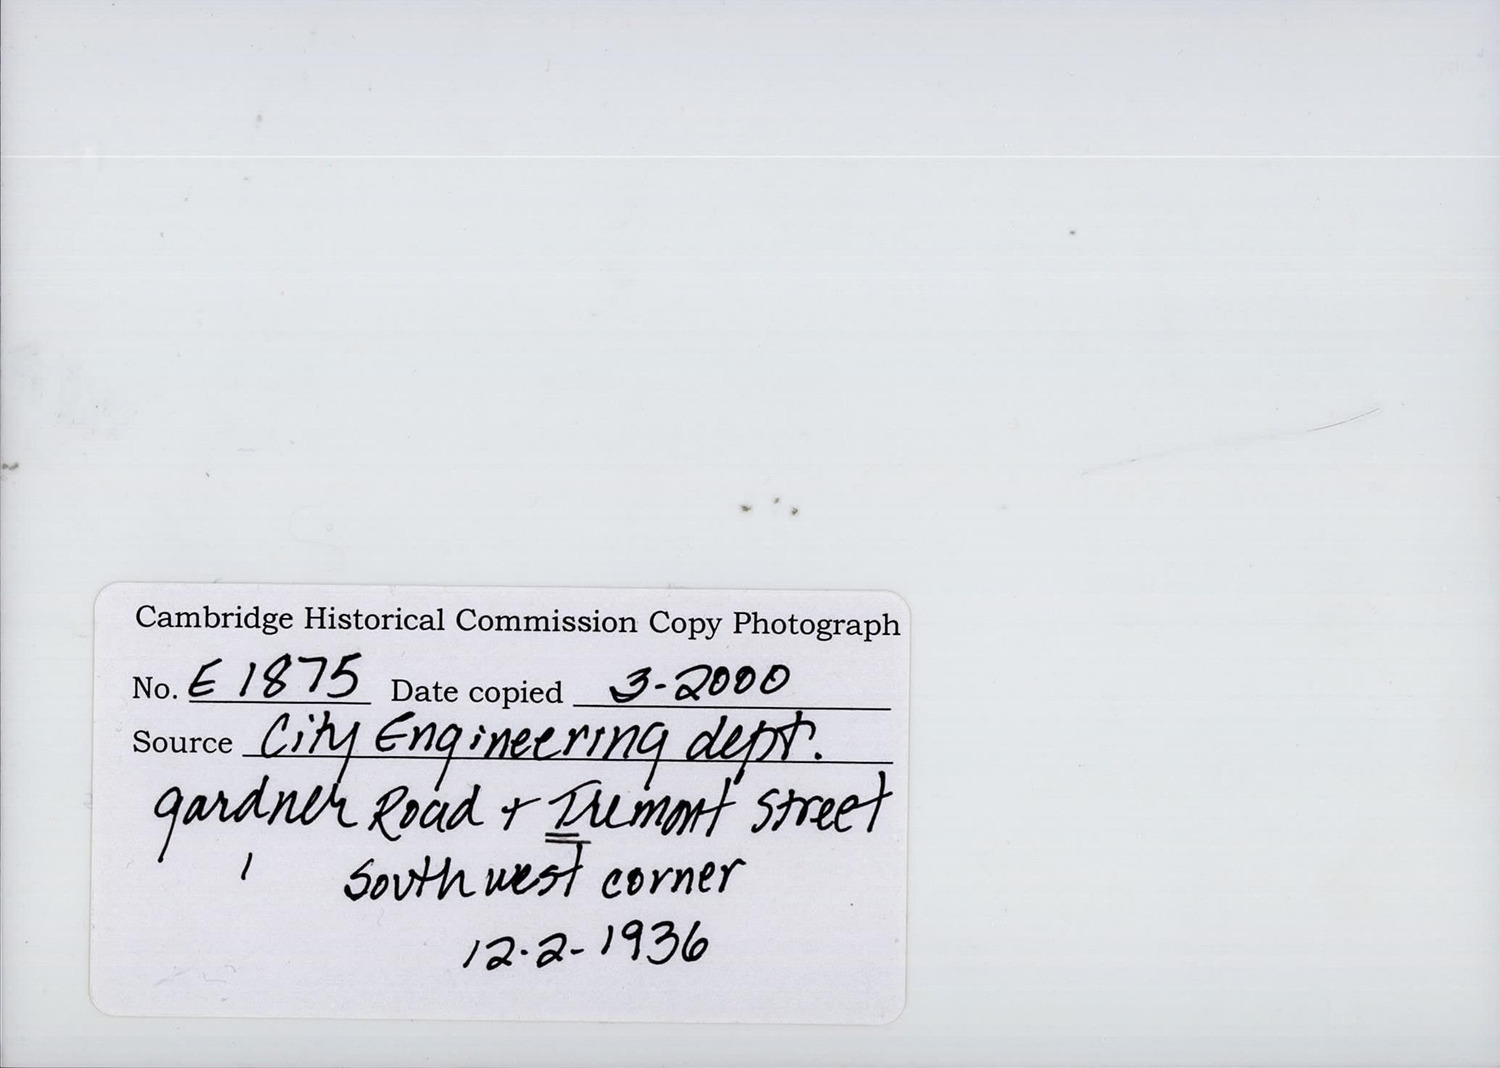 Cambridge Historical Commission Copy Photograph
No. E 1875 Date copied 3-2000
Source City Engineering dept.
gardner Road + Tremont Street
Southwest corner
12-2-1936